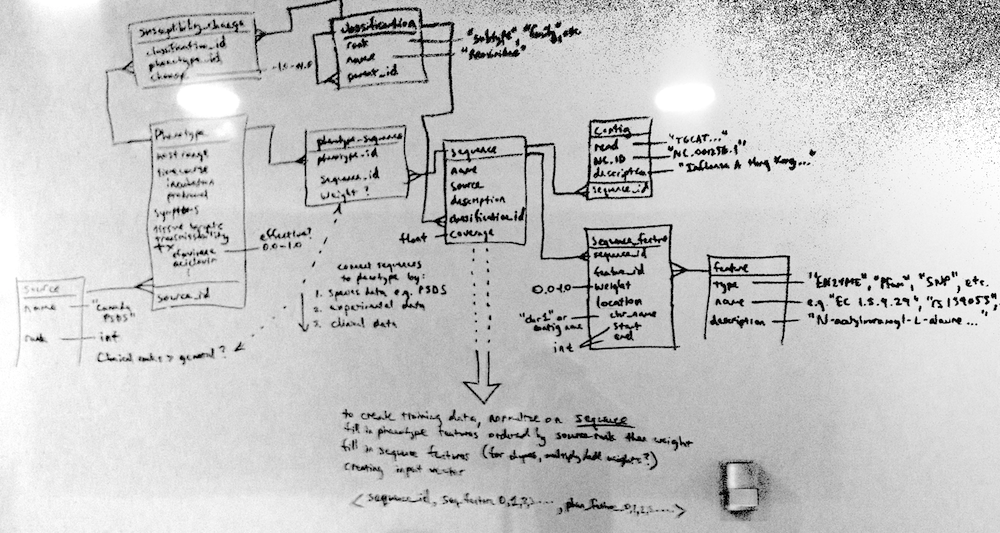 susceptibility_change
classification_id
phenotype_id
change
classification
rank
name
parent_id
"subtype", "family", etc
Phenotype
host range
time course
incubation
prodromal
symptoms
tissue tropic
transmissibility
tx
efavirenz
aciclovir
source_id
effective?
0.0-1.0
phenotype-sequence
phenotype_id
sequence_id
weight?
sequence
name
source
description
classification_id
coverage
float
Contig
read
NC.ID
description
sequence_id
"TGCAT..."
"Influenza A Hong Kong..."
sequence_feature
sequence_id
feature_id
weight
location
chr_name
start
end
0.0-1.0
"chr1" or
contig name
int
feature
type
name
description
"ENZYME", "Pfam", "SNP", etc.
e.g. "EC 1.5.9.29",
source
name
rank
"Canada
PSDS"
int
Clinical ranks > general?
connect sequences
to phenotype by:
1. species data e.g. PSDS
2. experimental data
3. clinical data
to create training data, normalize on sequence
fill in phenotype features ordered by source rank then weight
fill in sequence features (for dupes, multiply/add weights?)
creating input vector
< sequence_id, seq_feature_0,1,2,..., phen_feature_0,1,2,...>